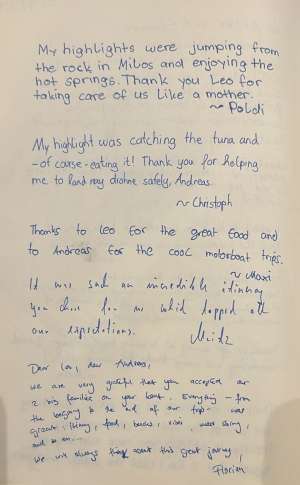 My highlights were jumping from
the rock in Milos and enjoying the
hot springs. Thank you Leo for
taking care of us like a mother.
~ Poldi
My highlight was catching the tuna and
- of course - eating it! Thank you for helping
me to land my drohne safely, Andreas.
~ Christoph
Thanks to Leo for the great food and
to Andreas for the cool motorboat trips.
~ Maxi
It was such an incredible itinerary
you chose for us which topped all
our expectations.
Dear Leo, dear Andreas,
we are very grateful that you accepted our
2 big families on your boat. Everything - from
the beginning to the end of our trip - was
great: food, beaches, vibes,
and so on...
We will always think about this great journey,
Florian